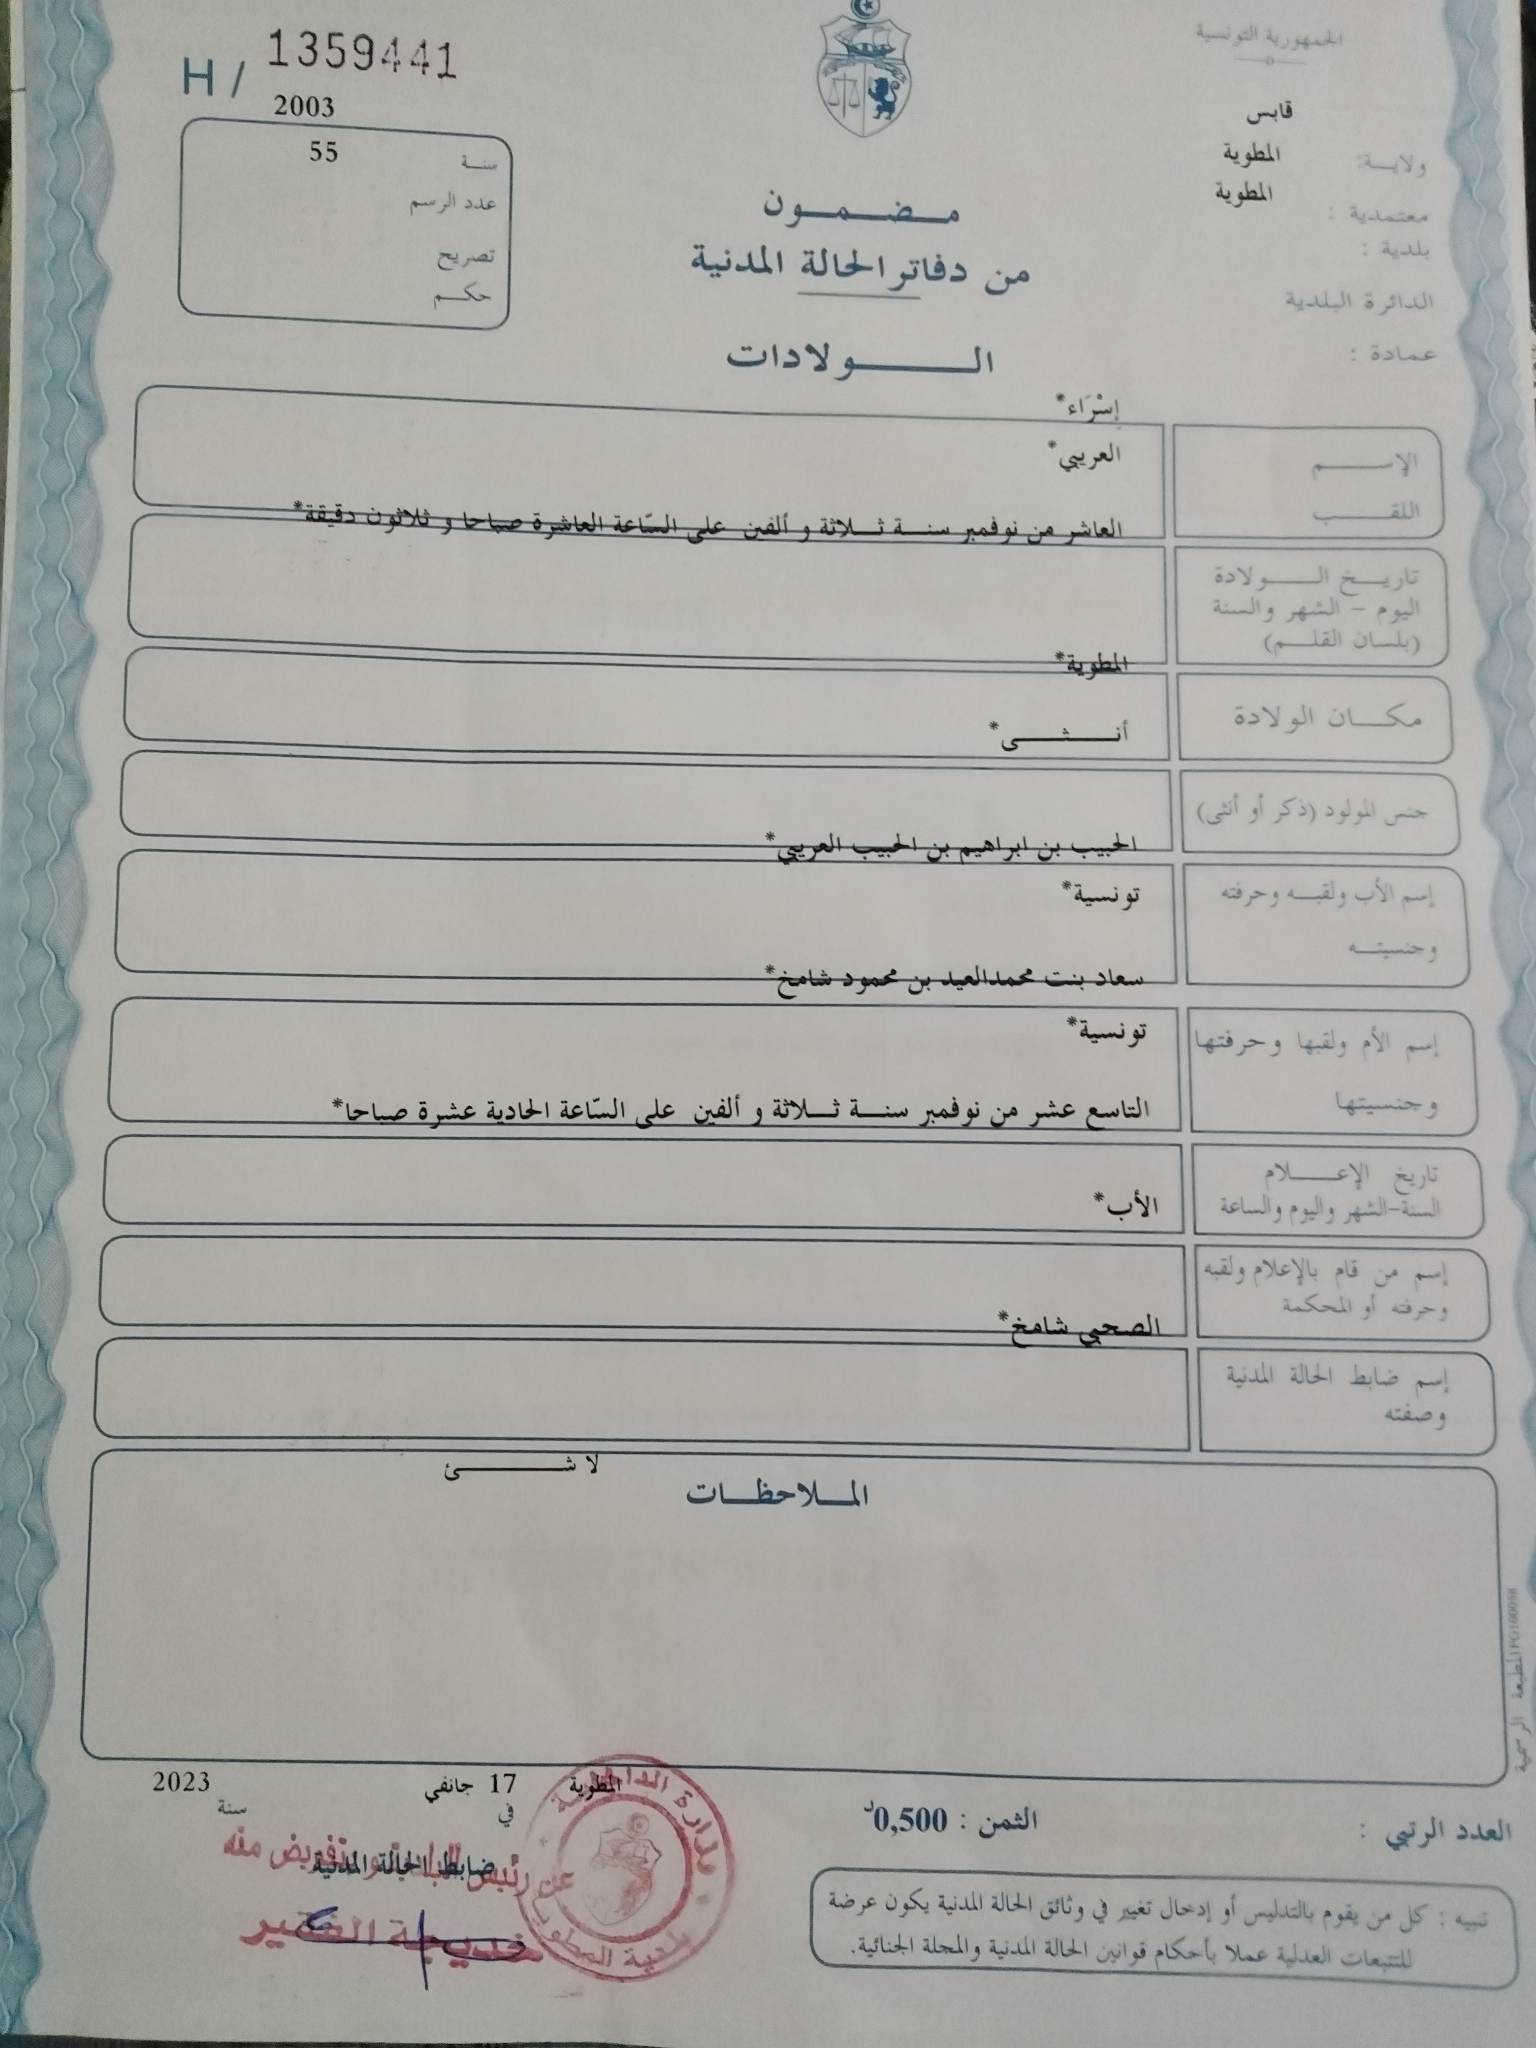 الجمهورية التونسية
H / 1359441
2003
قابس
ولاية:
المطوية
معتمدية :
المطوية
بلدية :
الدائرة البلدية
عمادة :
55
سنة
عدد الرسم
تصريح
حكم
مضمون
من دفاتر الحالة المدنية
الولادات
إِسْرَاء*
الإسم
العريبي*
اللقب
العاشر من نوفمبر سنة ثلاثة و ألفين على السّاعة العاشرة صباحا و ثلاثون دقيقة*
تاريخ الولادة
اليوم - الشهر والسنة
(بلسان القلم)
المطوية*
مكان الولادة
أنثى*
جنس المولود (ذكر أو أنثى)
الحبيب بن ابراهيم بن الحبيب العريبي*
إسم الأب ولقبه وحرفته
تونسية*
وجنسيته
سعاد بنت محمدالعيد بن محمود شامخ*
إسم الأم ولقبها وحرفتها
تونسية*
وجنسيتها
التاسع عشر من نوفمبر سنة ثلاثة و ألفين على السّاعة الحادية عشرة صباحا*
تاريخ الإعلام
السنة-الشهر واليوم والساعة
الأب*
إسم من قام بالإعلام ولقبه
وحرفته أو المحكمة
الصحبي شامخ*
إسم ضابط الحالة المدنية
وصفته
لا شئ
الملاحظات
المطبعة الرسمية
المطوية 17 جانفي 2023
في سنة
العدد الرتبي :
الثمن : 0,500د
ضابط الحالة المدنية
عن رئيس البلدية وبتفويض منه
خديجة الفقير
بلدية المطوية
تنبيه : كل من يقوم بالتدليس أو إدخال تغيير في وثائق الحالة المدنية يكون عرضة
للتتبعات العدلية عملا بأحكام قوانين الحالة المدنية والمجلة الجنائية.